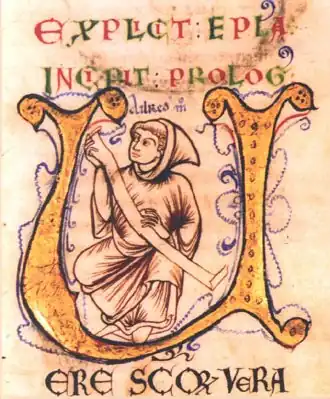 EXPLICT : EPLA
INCIPIT : PROLOG
U
ERE SCOꝜ VERA